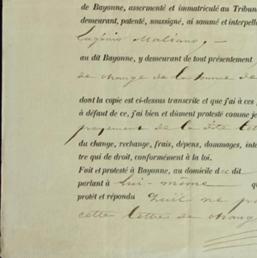 de Bayonne, assermenté et immatriculé au Tribu
demeurant, patenté, soussigné, ai sommé et interpell
au dit Bayonne, y demeurant de tout présentement
de change de la somme de
dont la copie est ci-dessus transcrite et que j'ai à ces
à défaut de ce, j'ai bien et dûment protesté comme je
payement de la dite lett
du change, rechange, frais, dépens, dommages, inté
tre qui de droit, conformément à la loi.
Fait et protesté à Bayonne, au domicile du dit
parlant à lui-même q
protêt et répondu qu'il ne p
cette lettre de chang